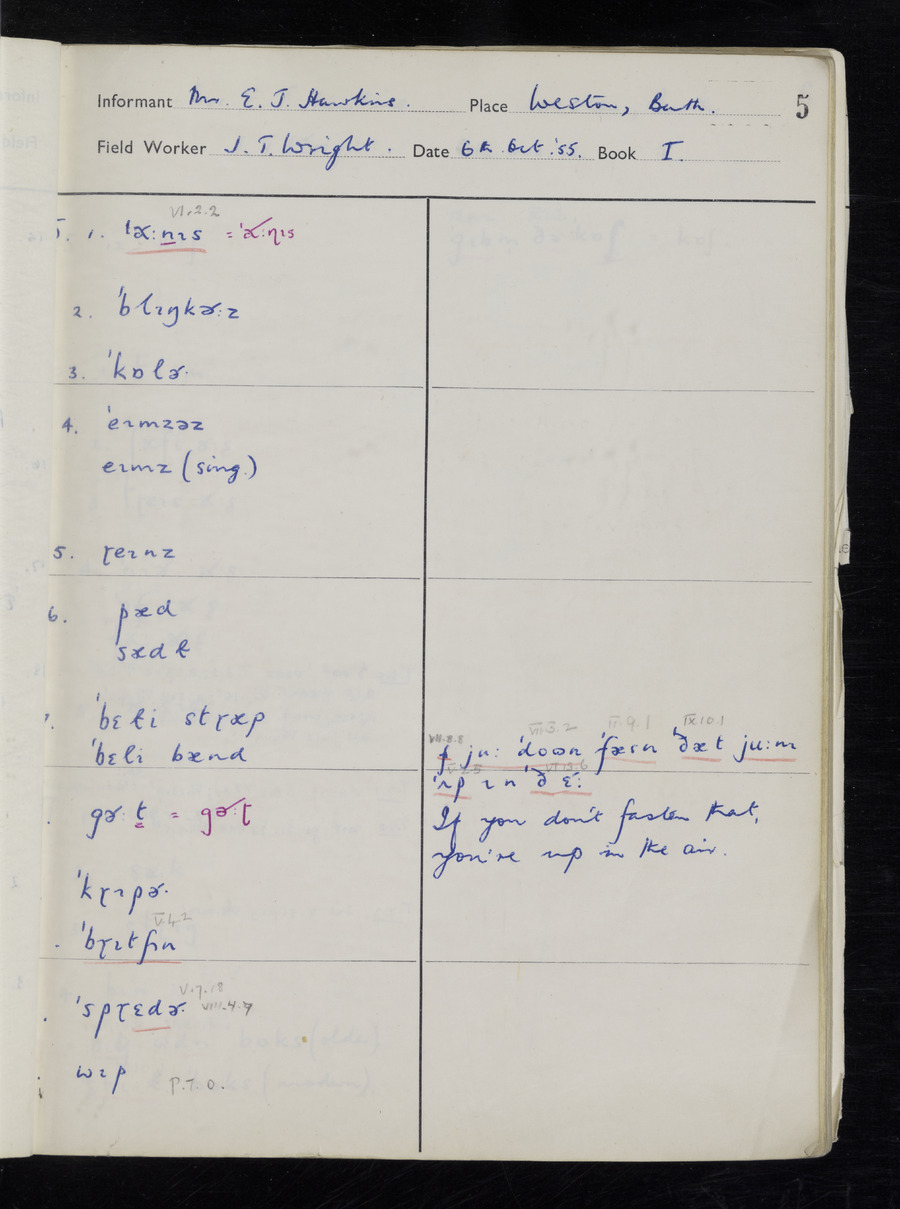 Informant Mr. E. J. Hawkins. Place Weston, Bath. 5
Field Worker J. T. Wright. Date 6th Oct '55. Book I.
VI.2.2
I. 1. ˈɑ˞:nɪs = ˈɑ˞:ɳɪs
2. ˈblɪŋkə˞:z
3. ˈkɒlə˞.
4. ˈeɪmzəz
eɪmz (sing.)
5. ɽeɪnz
6. pæd
sædɫ
7. ˈbɛɫi stɽæp
ˈbɛli bænd
gə˞:t = gə˞:ʈ
ˈkɽɪpə˞.
V.4.2
ˈbɽɪtʃɪn
V.7.18
ˈspɽɛdə˞. VIII.4.7
wɪp
P.T.O.
VIII.8.8 VII.3.2 II.9.1 IX.10.1
f ju: ˈdoʊn ˈfæsn ˈðæt ju:m
ˈʌp ɪn ˈðɛ:
If you don't fasten that,
you're up in the air.